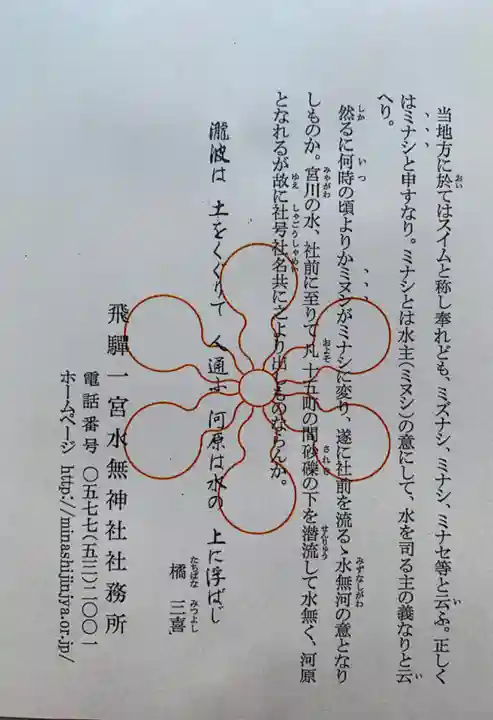 当地方に於てはスイムと称し奉れども、ミズナシ、ミナシ、ミナセ等と云ふ。正しく
はミナシと申すなり。ミナシとは水主(ミヌシ)の意にして、水を司る主の義なりと云
へり。
然るに何時の頃よりかミヌシがミナシに変り、遂に社前を流るゝ水無河の意となり
しものか。宮川の水、社前に至りて凡十五町の間砂礫の下を潜流して水無く、河原
となれるが故に社号社名共に之より出しものならんか。
瀧波は 土をくぐりて 人通ふ 河原は水の 上に浮ばじ
橘 三喜
飛驒一宮水無神社社務所
電話番号 〇五七七(五三)二〇〇一
ホームページ http://minashijinjya.or.jp/